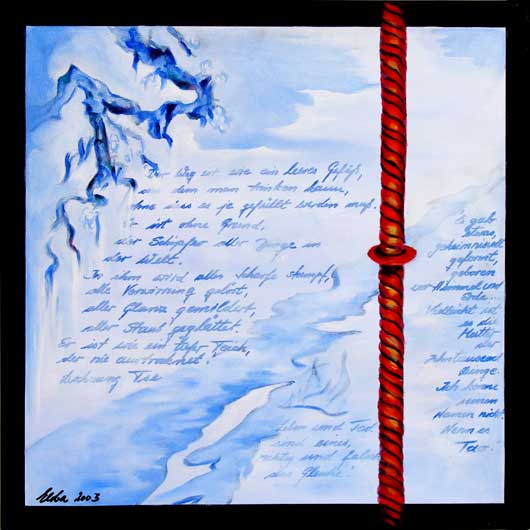 Der Weg ist wie ein leeres Gefäß,
aus dem man trinken kann,
ohne dass es je gefüllt werden muß.
Er ist ohne Grund,
der Schöpfer aller Dinge in
der Welt.
In ihm wird alles Scharfe stumpf,
alle Verwirrung gelöst,
aller Glanz gemildert,
aller Staub geglättet.
Er ist wie ein tiefer Teich,
der nie austrocknet.
Tse
Leben und Tod
sind eines,
richtig und falsch
das Gleiche.
Es gab
etwas,
geheimnisvoll
geformt,
geboren
vor Himmel und
Erde...
Vielleicht ist
es die
Mutter
der
zehntausend
Dinge.
Ich kenne
seinen
Namen nicht.
Nenn es
Tao.
Elka 2003